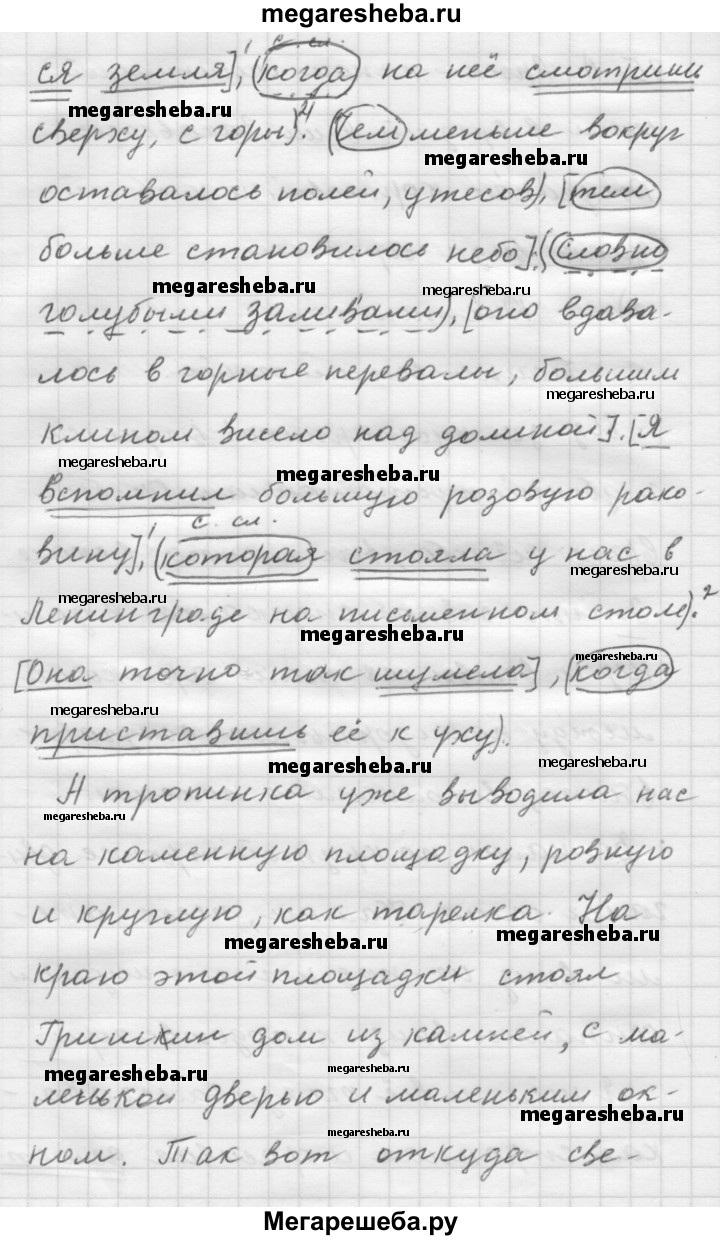 megaresheba.ru
с. сл.
ся земля],¹ (когда на неё смотришь
megaresheba.ru
сверху, с горы).⁴ (Чем меньше вокруг
megaresheba.ru
оставалось полей, утесов), [тем
больше становилось небо]. (Словно
megaresheba.ru megaresheba.ru
голубыми заливами), [оно вдава-
лось в горные перевалы, большим
megaresheba.ru
клином висело над долиной]. [Я
megaresheba.ru megaresheba.ru
вспомнил большую розовую рако-
с. сл.
вину],¹ (которая стояла у нас в
megaresheba.ru
Ленинграде на письменном столе).²
megaresheba.ru
megaresheba.ru
[Она точно так шумела], (когда
megaresheba.ru
приставишь её к уху).
megaresheba.ru megaresheba.ru
А тропинка уже выводила нас
megaresheba.ru
на каменную площадку, ровную
и круглую, как тарелка. На
megaresheba.ru megaresheba.ru
краю этой площадки стоял
Гришкин дом из камней, с ма-
megaresheba.ru megaresheba.ru
ленькой дверью и маленьким ок-
megaresheba.ru
megaresheba.ru
ном. Так вот откуда све-
Мегарешеба.ру